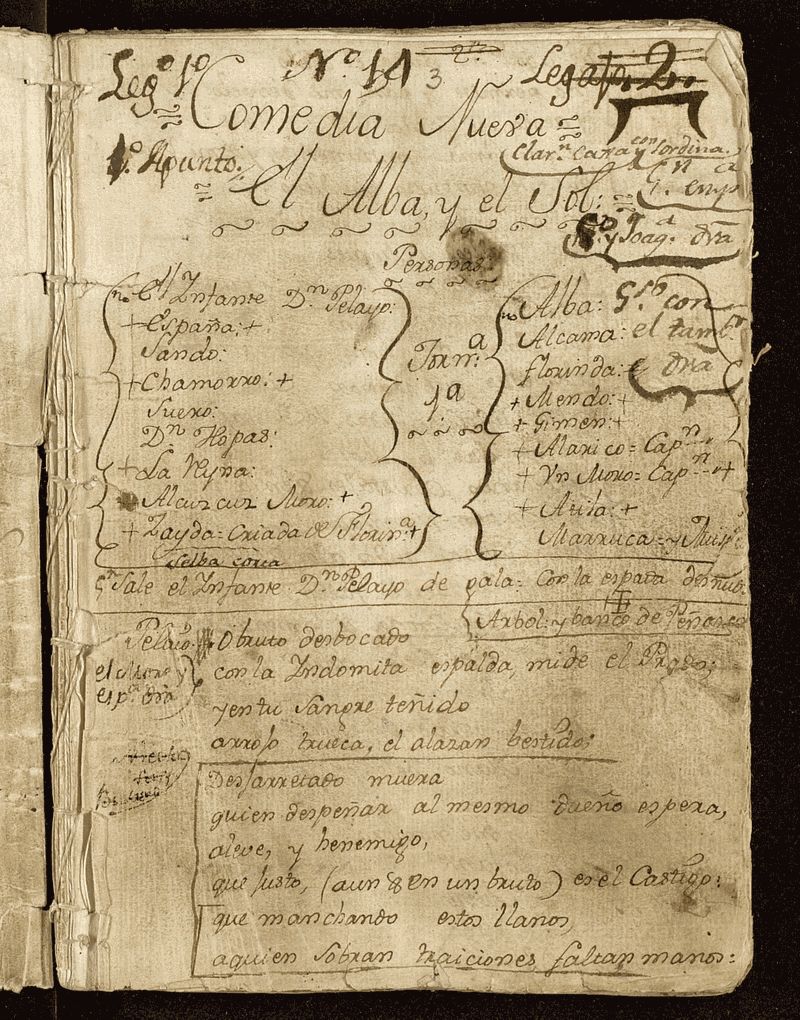 Leg.º 1º Nº 14 3 Legajo 2.
Comedia Nueva
1º Apunto.
Clar.n Caxa y con Sordina.
El Alba, y el Sol:
y Joaq.n dra
Personas.
El Infante D.n Pelayo:
+ España: +
Sando:
+ Chamorro: +
Suero:
D.n Hopas:
+ La Reyna:
Alcuzcuz Moro: +
+ Zayda = Criada de Florin.a +
Jorn.a
1ª
Alba: con
Alcama: el tamb.r
florinda: + dra
+ Mendo: +
+ Gimen: +
+ Alarico = Cap.n
+ Un Moro = Cap.n +
+ Atila: +
Marruca = y Mus.
Selba corta
Sale el Infante D.n Pelayo de gala = Con la espada desnuda
Arbol: y banco de Peñasco
Pelayo. O bruto desbocado
el Moro y
esp.a dra
con la Indomita espalda, mide el Prado;
y en tu Sangre teñido
arrojo trueca, el alazan bestido:
Desjarretado muera
quien despeñar al mesmo dueño espera,
aleve, y henemigo,
que Justo, (aun en un bruto) es el Castigo:
que manchando estos llanos,
a quien sobran traiciones faltan manos: